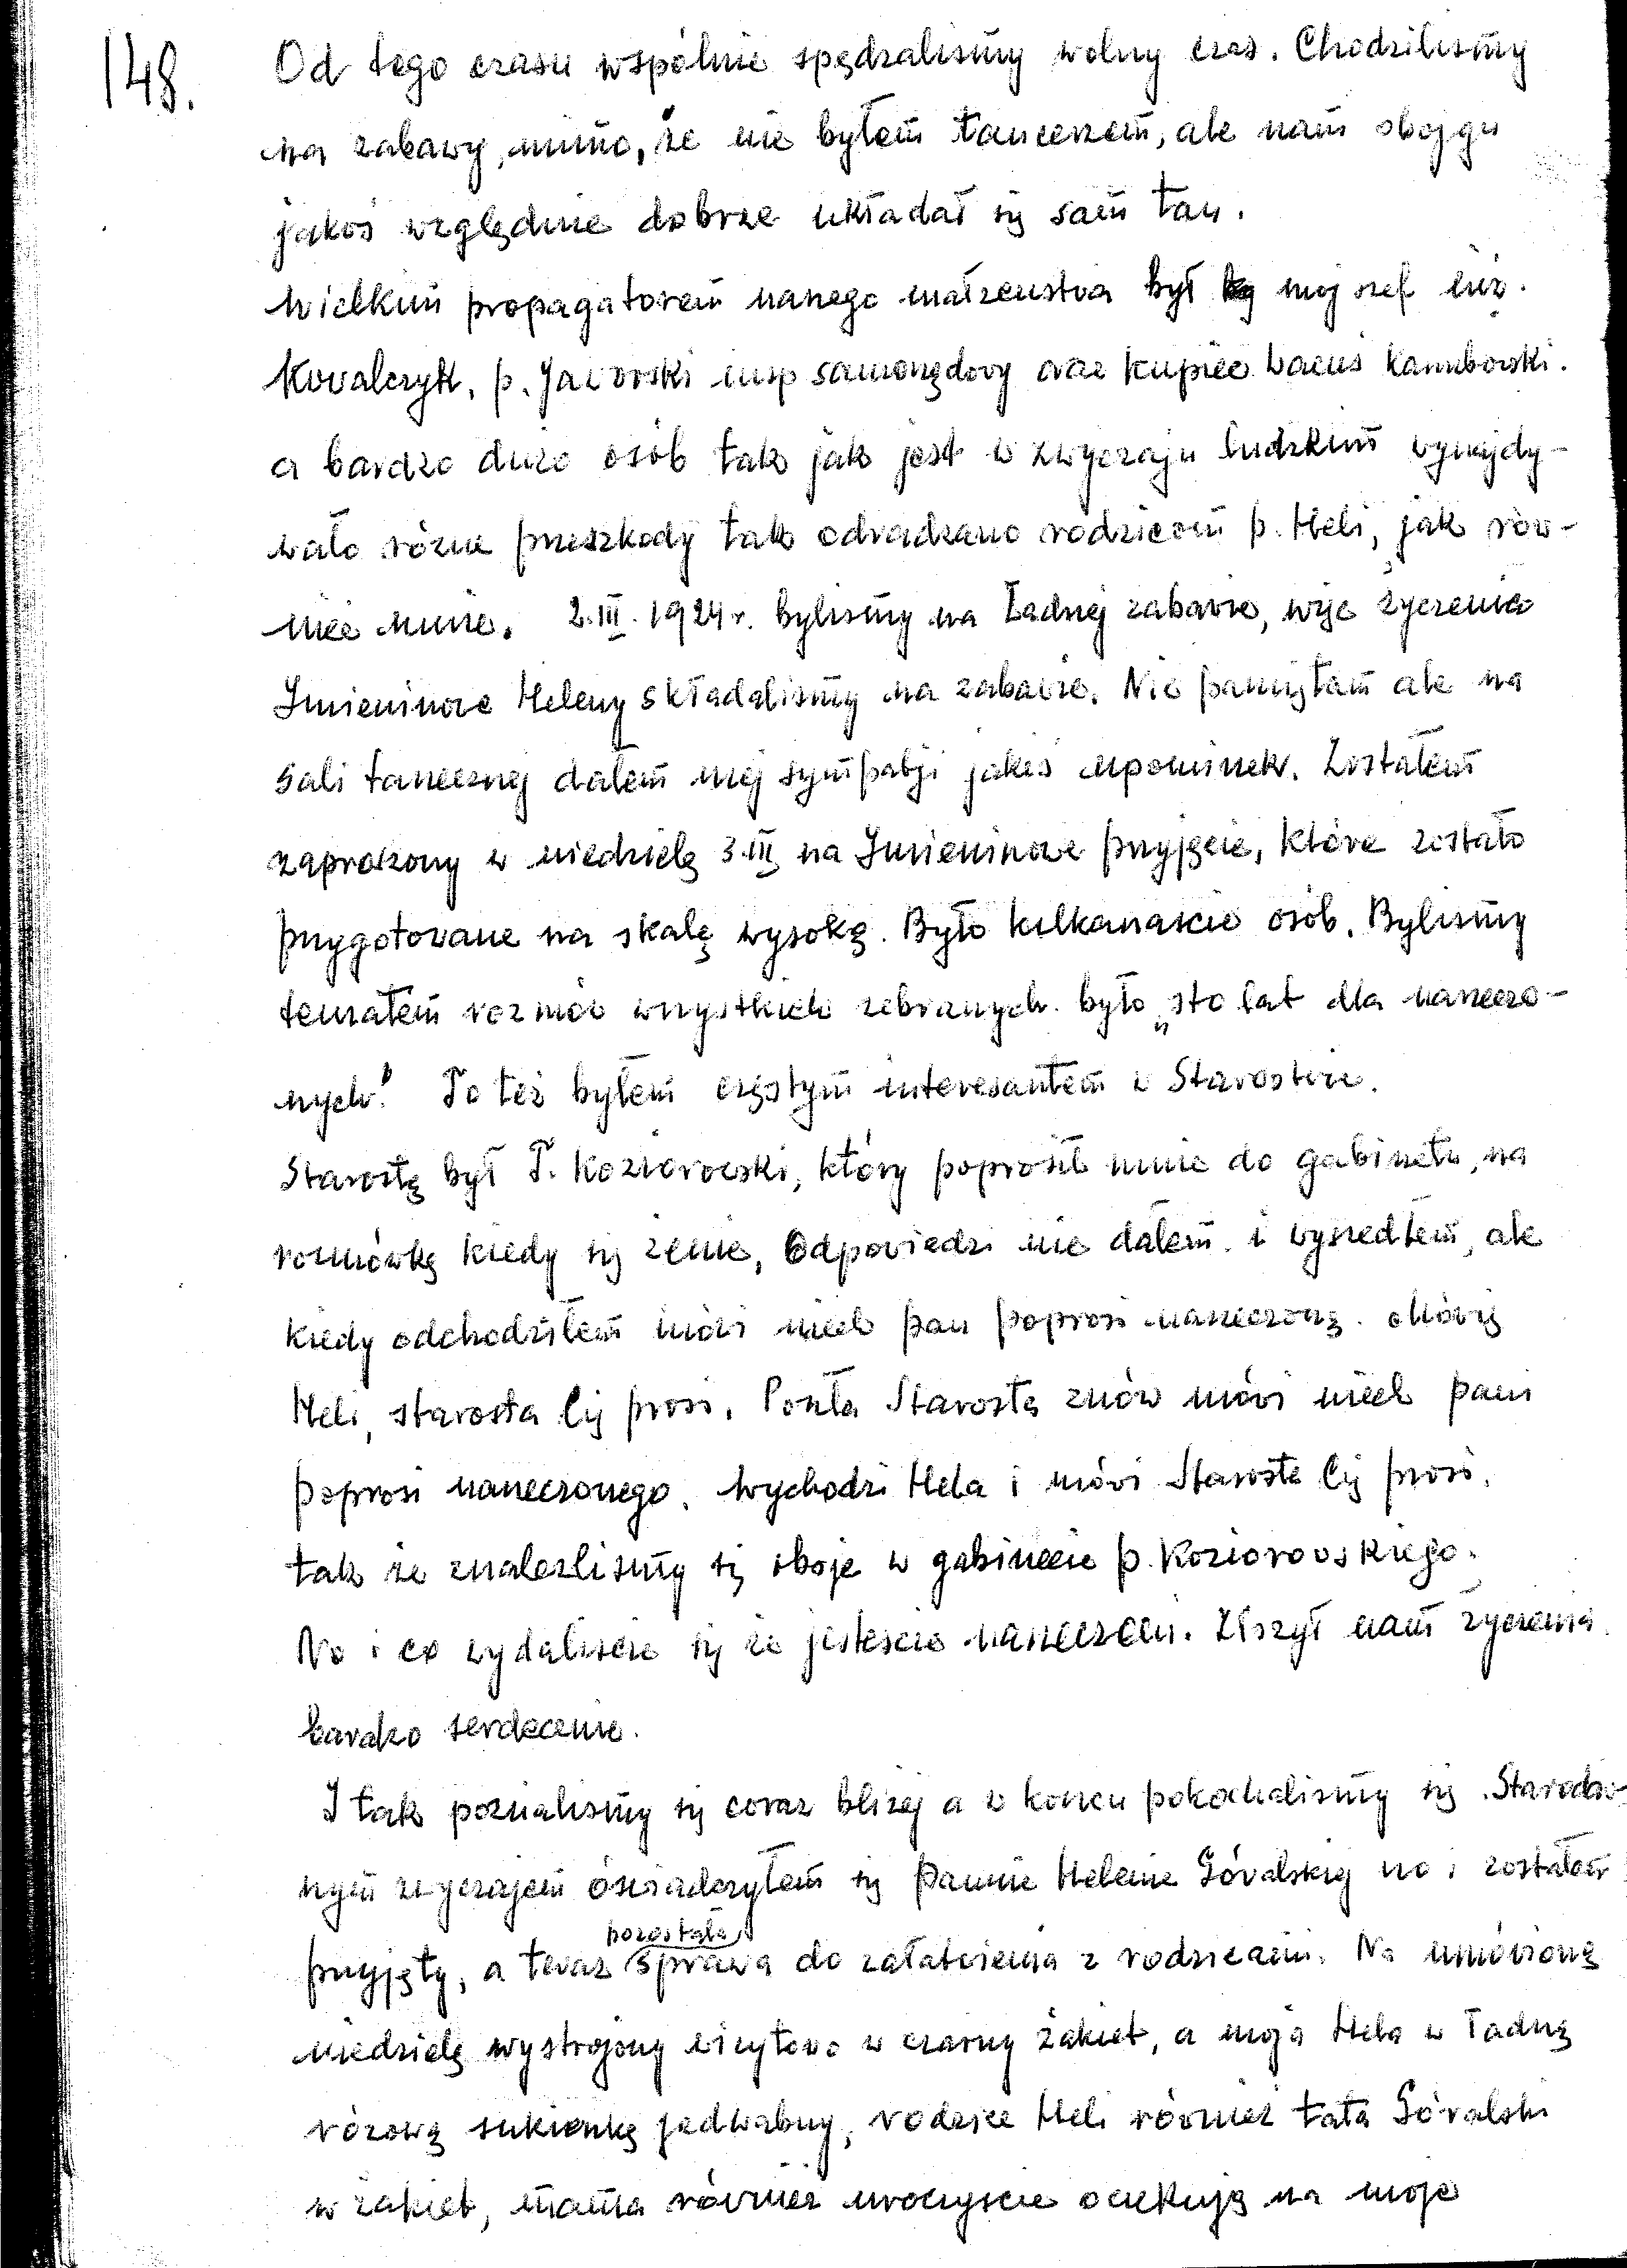 148.
Od tego czasu wspólnie spędzaliśmy wolny czas. Chodziliśmy
na zabawy, mimo, że nie byłem tancerzem, ale nam obojgu
jakoś względnie dobrze układał się sam tan.
Wielkim propagatorem naszego małżeństwa był mój szef inż.
Kowalczyk, p. Jaworski insp samorządowy oraz kupiec Wacuś
a bardzo dużo osób tak jak jest w zwyczaju ludzkim wynajdy-
wało różne przeszkody tak odradzano rodzicom p. Heli, jak rów-
nież mnie. 2.III.1924 r. byliśmy na ładnej zabawie, więc życzenia
Imieninowe Heleny składaliśmy na zabawie. Nie pamiętam ale na
sali tanecznej dałem mej sympatji jakiś upominek. Zostałem
zaproszony w niedzielę 3.III na Imieninowe przyjęcie, które zostało
przygotowane na skalę wysoką. Było kilkanaście osób. Byliśmy
tematem rozmów wszystkich zebranych. było „sto lat dla narzeczo-
nych." To też byłem częstym interesantem w Starostwie.
Starostą był P. Koziorowski, który poprosił mnie do gabinetu, na
rozmówkę kiedy się żenię, Odpowiedzi nie dałem i wyszedłem, ale
kiedy odchodziłem mówi niech pan poprosi narzeczoną. Mówię
Heli, starosta Cię prosi. Poszła Starosta znów mówi niech pani
poprosi narzeczonego. Wychodzi Hela i mówi Starosta Cię prosi,
tak że znaleźliśmy się oboje w gabinecie p. Koziorowskiego.
No i co wydaliście się że jesteście narzeczeni. Złożył nam życzenia
bardzo serdecznie.
I tak poznaliśmy się coraz bliżej a w koncu pokochaliśmy się. Starodaw-
nym zwyczajem oświadczyłem się pannie Helenie Góralskiej no i zostałem
pozostała
przyjęty, a teraz sprawa do załatwienia z rodzicami. Na umówioną
niedzielę wystrojony wizytowo w czarny żakiet, a moja Hela w ładną
różową sukienkę jedwabny, rodzice Heli również tata Góralski
w żakiet, mama również uroczyście oczekują na moje